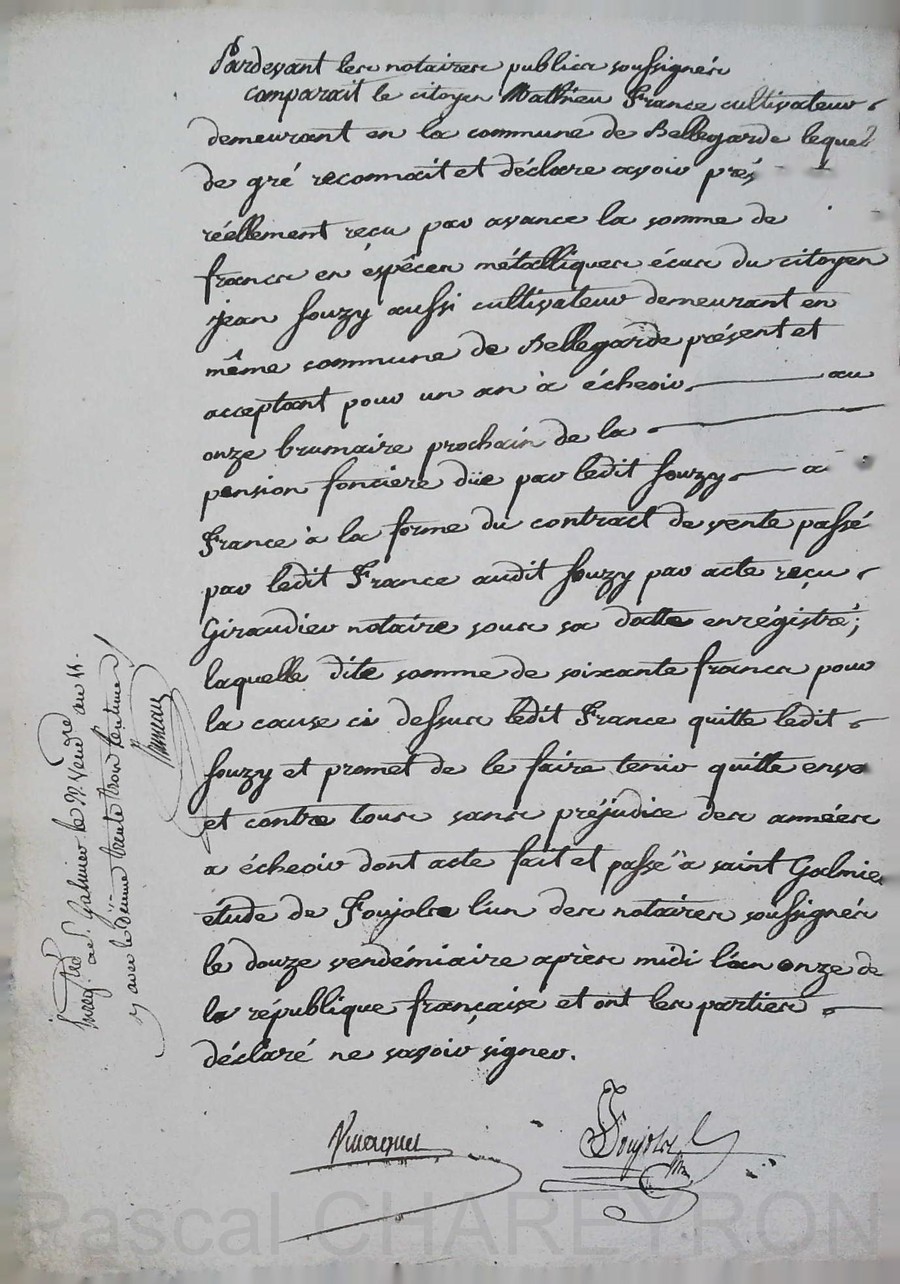 Pardevant les notaires publics soussignés
comparait le citoyen Mathieu France cultivateur
demeurant en la commune de Bellegarde lequel
de gré reconnait et déclare avoir prés
réellement reçu par avance la somme de
francs en éspêces métalliques écus du citoyen
jean Souzy aussi cultivateur demeurant en
même commune de Bellegarde présent et
acceptant pour un an à écheoir au
onze brumaire prochain de la
pension fonciere düe par ledit Souzy a
France à la forme du contract de vente passé
par ledit France audit Souzy par acte reçu
Giraudier notaire sous sa datte enrégistré;
laquelle dite somme de soixante francs pour
la cause ci dessus ledit France quitte ledit
Souzy et promet de le faire tenir quitte envs
et contre tous sans préjudice des années
a écheoir dont acte fait et passé à saint Galmier
étude de Foujols l'un des notaires soussignés
le douze vendémiaire après midi l'an onze de
la république française et ont les parties
déclaré ne savoir signer.
Foujols
Enregtré a St. Galmier le Vendre an 11.
avec le dixme trente trois centimes
Pascal CHAREYRON